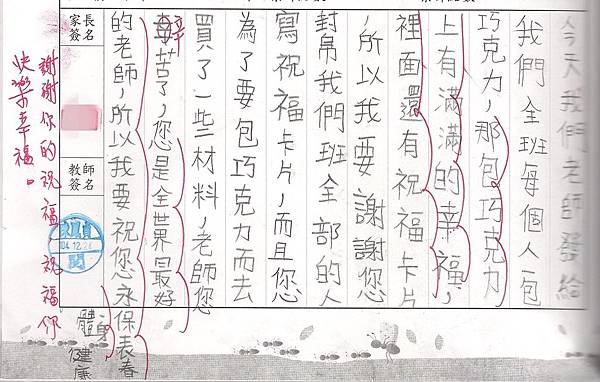 今天我們老師發給
我們全班每個人一包
巧克力，那包巧克力
上有滿滿的幸福，
裡面還有祝福卡片
，所以我要謝謝您
幫我們班全部的人
寫祝福卡片，而且您
為了要包巧克力而去
買了一些材料，老師您
辛苦了，您是全世界最好
的老師，所以我要祝您永保表春
身體健康
家長簽名
教師簽名
104.12.24
閱
謝謝你的祝福 祝福你
快樂幸福。